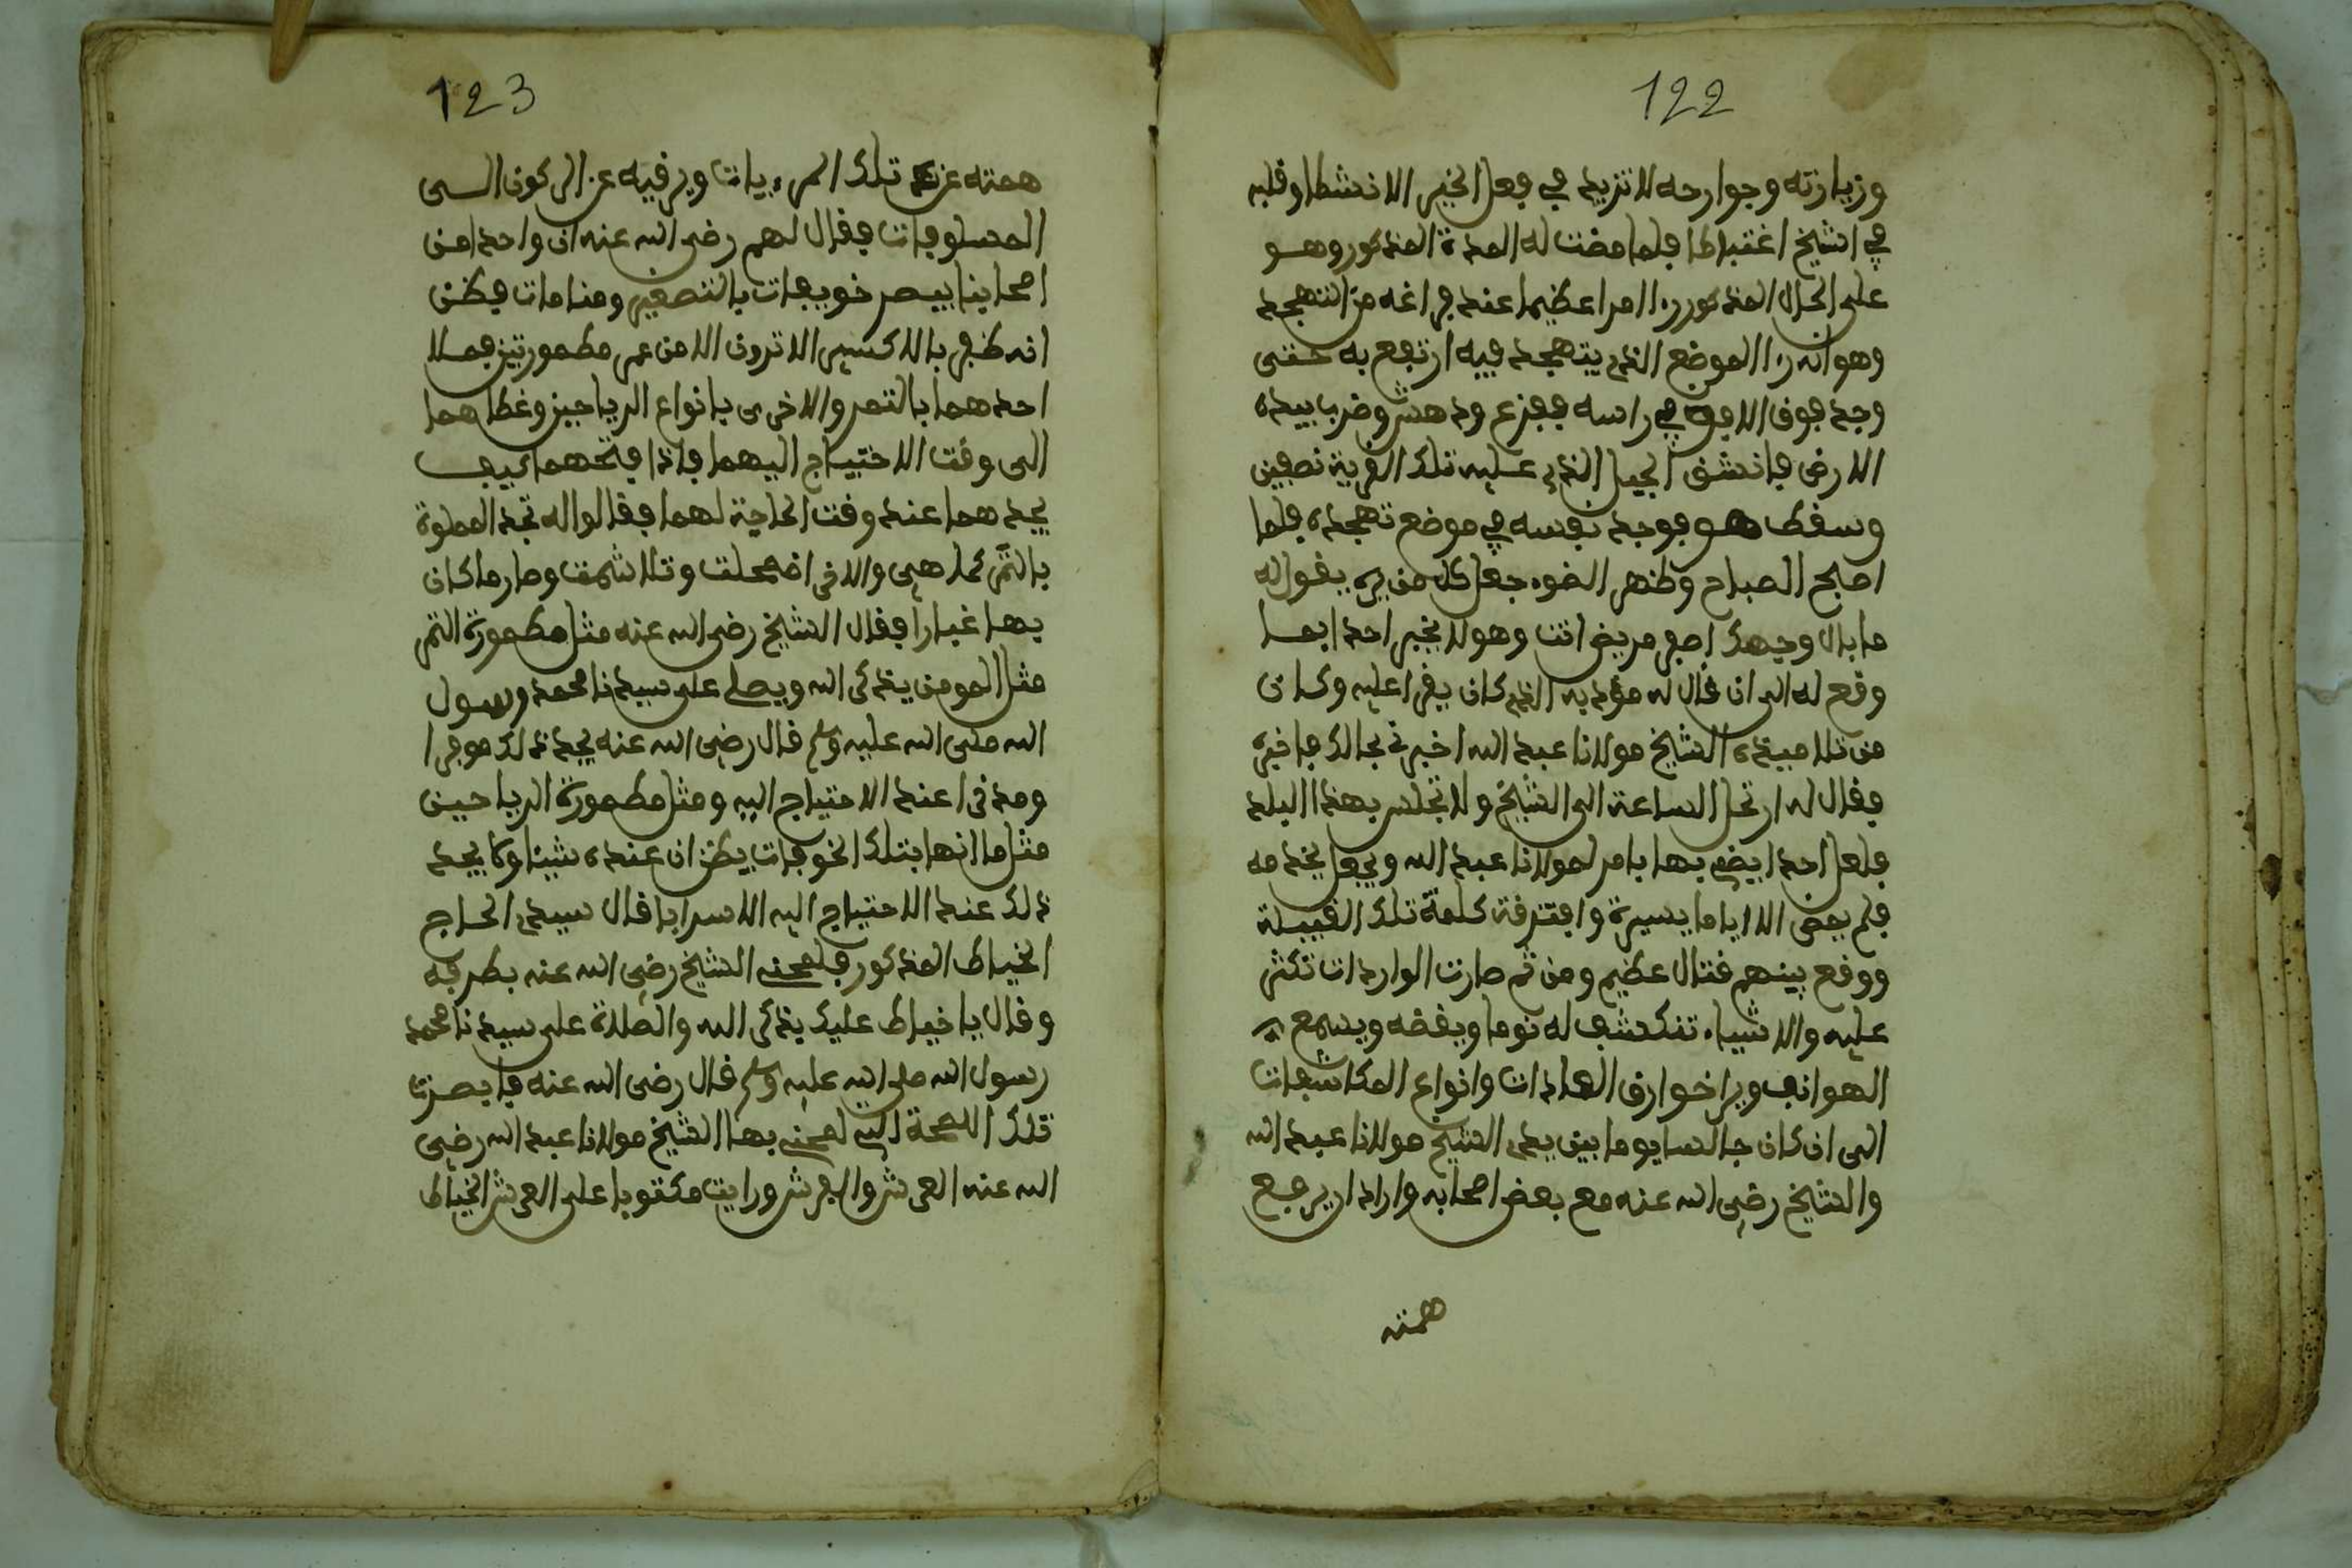 122
وزيارته وجوارحه لا تزيد في فعل الخير الا نشطا وقلبه
في الشيخ اغتباطا فلما مضت له المدة المذكور وهو
على الحال المذكور را امرا عظيما عند فراغه من التهجد
وهو انه را الموضع الذي يتهجد فيه ارتفع به حتى
وجد فوف الافق في راسه ففزع ودهش وضرب بيده
الارض فانشق الجبل الذي عليه تلك القرية نصفين
وسقط هو فوجد نفسه في موضع تهجده فلما
اصبح الصباح وظهر الضوء جعل كل من يره يقول له
ما بال وجهك اصفر مريض انت وهو لا يخبر احدا بما
وقع له الى ان قال له مؤدبه الذي كان يقرا عليه وكان
من تلاميذه الشيخ مولانا عبد الله اخبرني بحالك فاخبره
فقال له ارتحل الساعة الى الشيخ ولا تجلس بهذا البلد
فلعل احدا يضر بها بامر لمولانا عبد الله ويجعل يخدمه
فلم يمض الا اياما يسيرة وافترقة كلمة تلك القبيلة
ووقع بينهم قتال عظيم ومن ثم صارت الواردات تكثر
عليه والاشياء تنكشف له نوما ويقضه ويسمع
الهواتف ويرا خوارق العادات وانواع المكاشفات
الى ان كان جالسا يوما بين يدي الشيخ مولانا عبد الله
والشيخ رضي الله عنه مع بعض اصحابه واراد ان يرجع
همته
123
همته عن تلك المرءيات ويرقيه عن الركون الى
المسلوفات فقال لهم رضي الله عنه ان واحدا من
اصحابنا يبصر خويفات بالتصغير ومنامات فيظن
انه ظفر بالاكسير الا ترون الا من عمر مطمورتين فملا
احدهما بالتمر والاخرى بانواع الرياحين وغطاهما
الى وقت الاحتياج اليهما فاذا فتحهما كيف
يجدهما عند وقت الحاجة لهما فقالوا له تجد المملوة
بالتمر كما هي والاخرى اضمحلت وتلاشمت وصار ما كان
بها غبارا فقال الشيخ رضي الله عنه مثل مطمورة التمر
مثل المومن يذكر الله ويصلي على سيدنا محمد رسول
الله صلى الله عليه وسلم قال رضي الله عنه يجد ذلك موفرا
ومدخرا عند الاحتياج اليه ومثل مطمورة الرياحين
مثل ما انها بتلك الخوفات يظن ان عنده شيئا ولا يجد
ذلك عند الاحتياج اليه الا سرابا قال سيدي الحاج
الخياط المذكور فلمحني الشيخ رضي الله عنه بطرفه
وقال يا خياط عليك بذكر الله والصلاة على سيدنا محمد
رسول الله صلى الله عليه وسلم قال رضي الله عنه فابصرت
تلك اللمحة التي لمحني بها الشيخ مولانا عبد الله رضي
الله عنه العرش والفرش ورايت مكتوبا على العرش الخياط